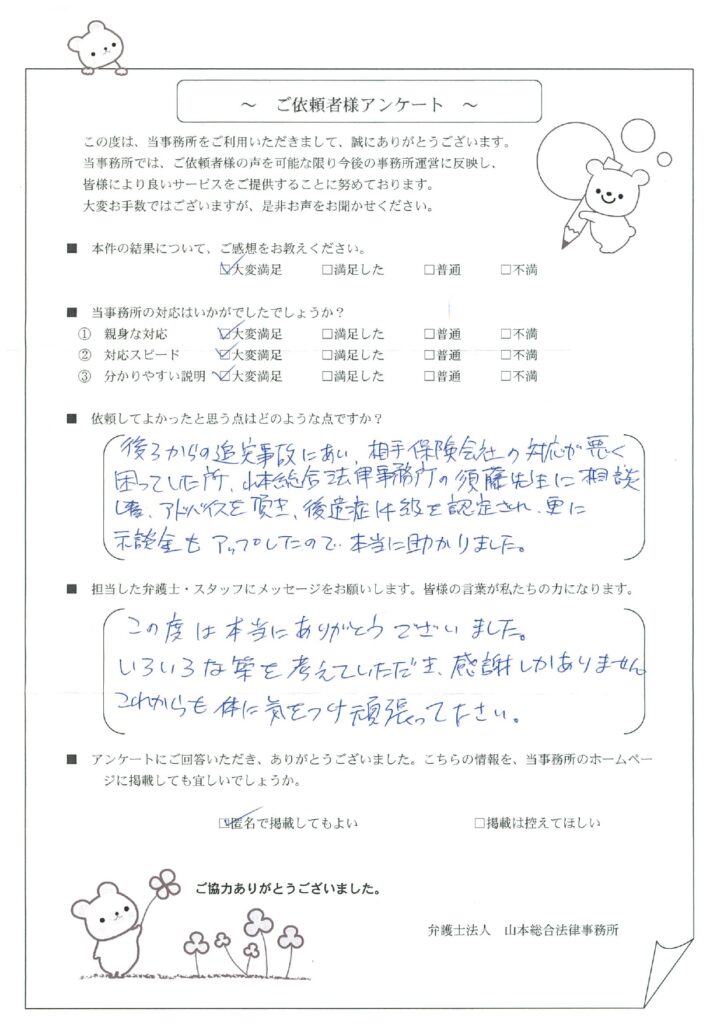 ～ ご依頼者様アンケート ～
この度は、当事務所をご利用いただきまして、誠にありがとうございます。
当事務所では、ご依頼者様の声を可能な限り今後の事務所運営に反映し、
皆様により良いサービスをご提供することに努めております。
大変お手数ではございますが、是非お声をお聞かせください。
■ 本件の結果について、ご感想をお教えください。
☑大変満足 □満足した □普通 □不満
■ 当事務所の対応はいかがでしたでしょうか？
① 親身な対応 ☑大変満足 □満足した □普通 □不満
② 対応スピード ☑大変満足 □満足した □普通 □不満
③ 分かりやすい説明 ☑大変満足 □満足した □普通 □不満
■ 依頼してよかったと思う点はどのような点ですか？
後ろからの追突事故にあい、相手保険会社の対応が悪く
困っていた所、山本総合法律事務所の須藤先生に相談
し、アドバイスを頂き、後遺症14級を認定され、更に
示談金もアップしたので本当に助かりました。
■ 担当した弁護士・スタッフにメッセージをお願いします。皆様の言葉が私たちの力になります。
この度は本当にありがとうございました。
いろいろな策を考えていただき、感謝しかありません
これからも体に気をつけ頑張って下さい。
■ アンケートにご回答いただき、ありがとうございました。こちらの情報を、当事務所のホームペー
ジに掲載しても宜しいでしょうか。
☑匿名で掲載してもよい □掲載は控えてほしい
ご協力ありがとうございました。
弁護士法人 山本総合法律事務所